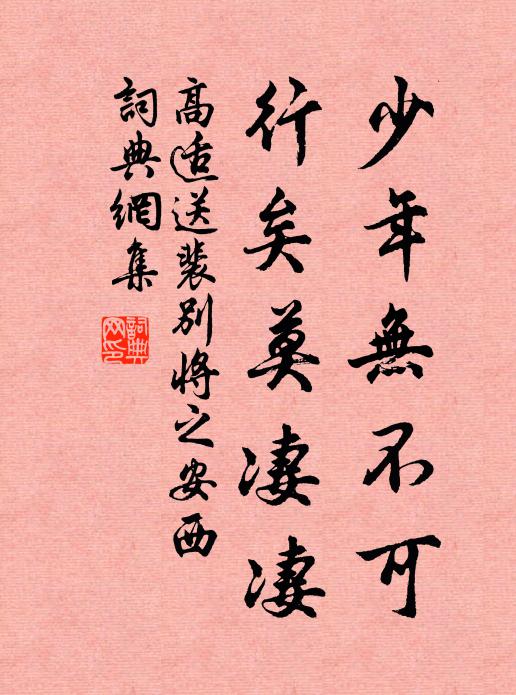 少年無不可
行矣莫凄凄
高适送裴別將之安西
詞典網集
詞典网印